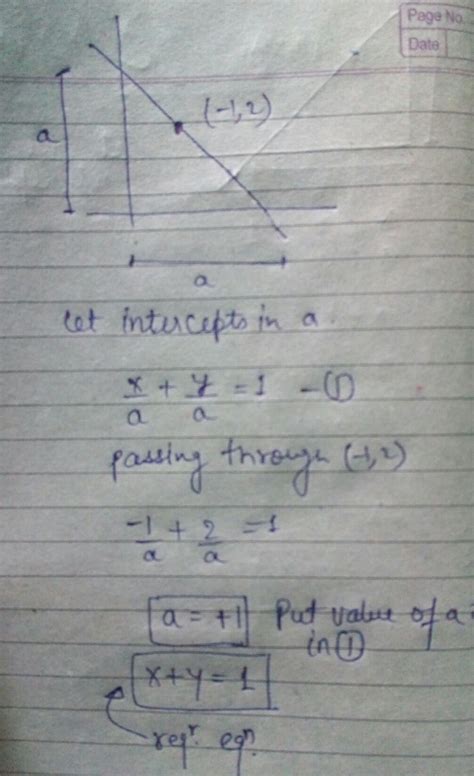 Page No.
Date
(-1,2)
a
a
Let intercepts in a.
x/a + y/a = 1 -①
passing through (-1,2)
-1/a + 2/a = 1
a = +1 Put value of a
in ①
x+y = 1
reqr. eqn.